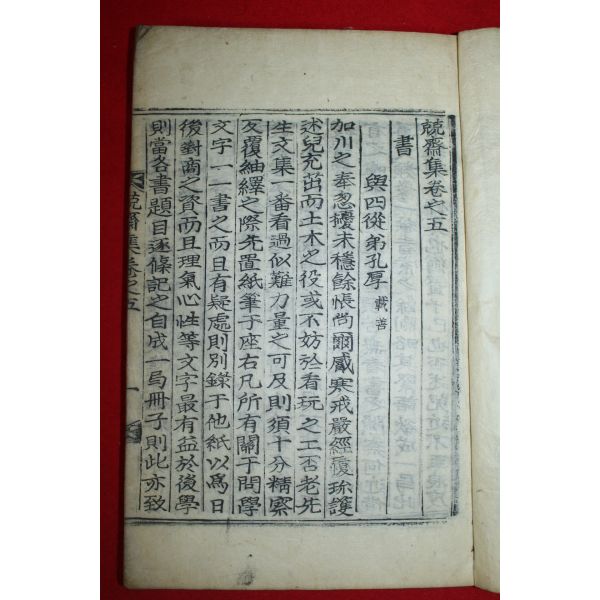 兢齋集卷之五
書
與四從弟孔厚 載善
加川之奉忽擾未穩餘悵尚爾歲寒戒嚴經履珎護
述兒充茁而土木之役或不妨於看玩之工否老先
生文集一番看過似難力量之可及則須十分精察
反覆紬繹之際先置紙筆于座右凡所有關于問學
文字一一書之而且有疑處則別錄于他紙以爲日
後對商之資而且理氣心性等文字最有益於後學
則當各書題目逐條記之自成一局冊子則此亦致
兢齋集卷之五
一